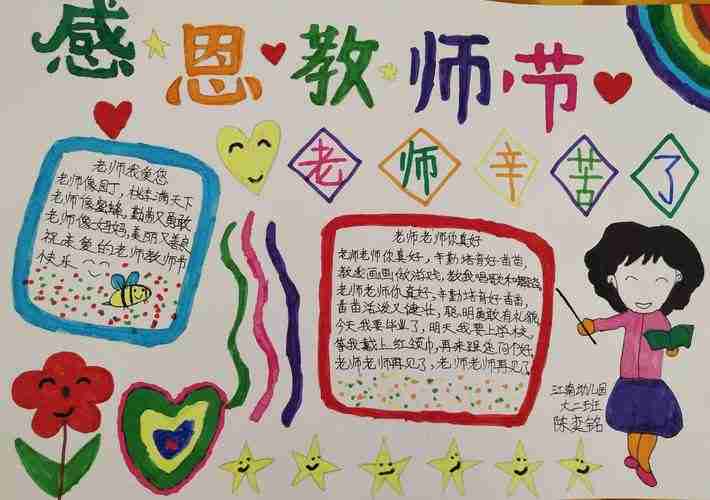 感恩教师节
老师辛苦了
老师我爱您
老师像园丁，桃李满天下
老师像蜜蜂，勤劳又勇敢
老师像妈妈，美丽又善良
祝亲爱的老师教师节
快乐
老师老师你真好
老师老师你真好，辛勤培育好苗苗，
教我画画做游戏，教我唱歌和舞蹈
老师老师你真好，辛勤培育好苗苗，
苗苗活泼又健壮，聪明勇敢有礼貌，
今天我要毕业了，明天我要上学校，
等我戴上红领巾，再来跟您问个好，
老师老师再见了，老师老师再见了
幼儿园
大二班
陈奕铭